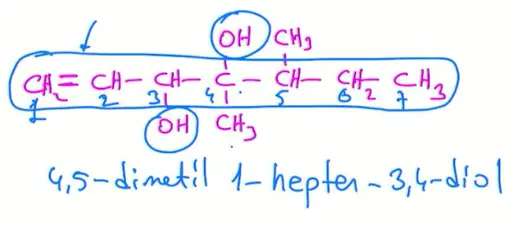 OH CH3
CH2=CH-CH-C-CH-CH2-CH3
1 2 3 4 5 6 7
OH CH3
4,5-dimetil 1-hepten-3,4-diol